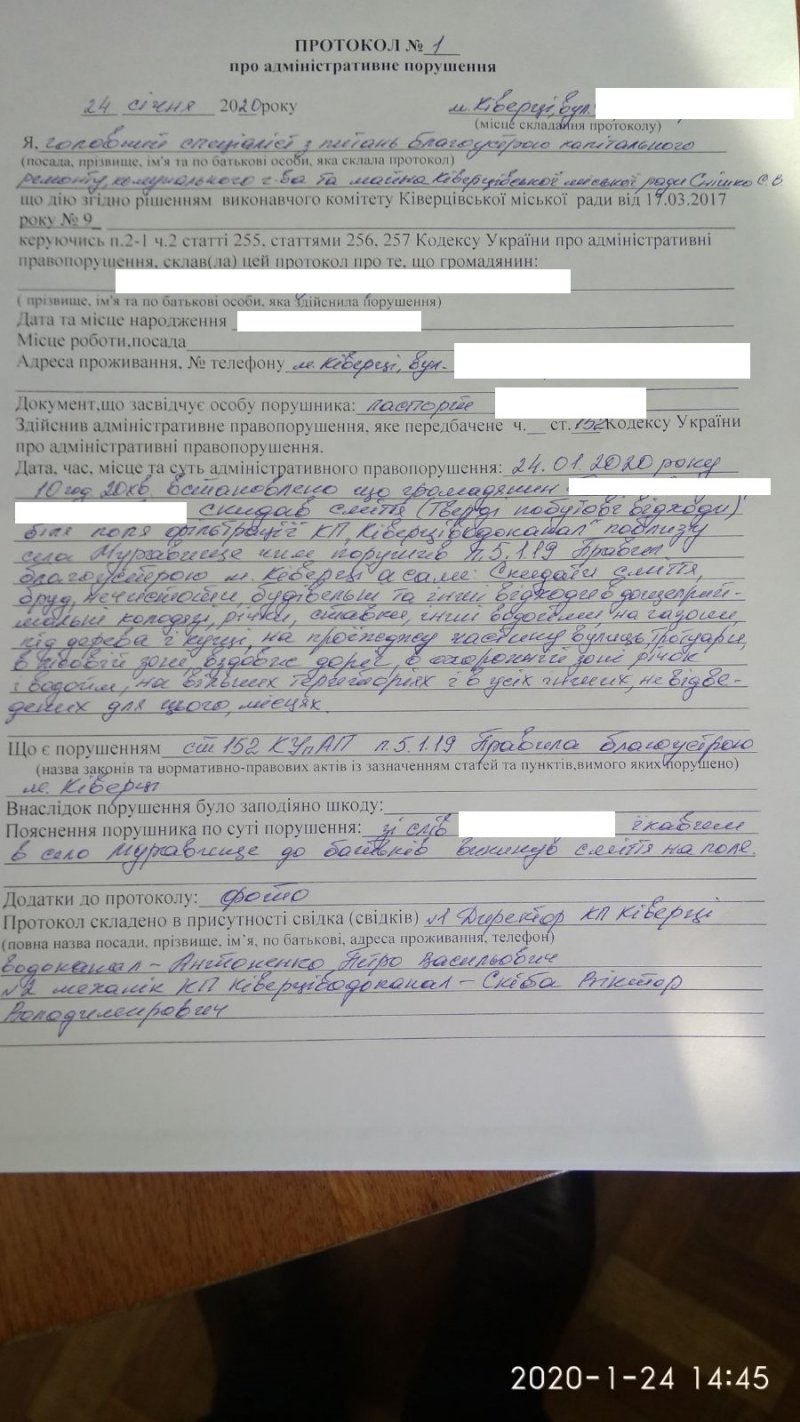 ПРОТОКОЛ № 1
про адміністративне порушення
24 січня 2020 року м. Ківерці, вул.
(місце складання протоколу)
Я, головний спеціаліст з питань благоустрою капітального
(посада, прізвище, ім'я та по батькові особи, яка склала протокол)
ремонту, комунального г-ва та майна Ківерцівської міської ради Снішко С.В.
що дію згідно рішенням виконавчого комітету Ківерцівської міської ради від 17.03.2017
року № 9_
керуючись п.2-1 ч.2 статті 255, статтями 256, 257 Кодексу України про адміністративні
правопорушення, склав(ла) цей протокол про те, що громадянин:
( прізвище, ім'я та по батькові особи, яка здійснила порушення)
Дата та місце народження
Місце роботи,посада
Адреса проживання, № телефону м. Ківерці, вул.
Документ,що засвідчує особу порушника: паспорт
Здійснив адміністративне правопорушення, яке передбачене ч.__ ст.152Кодексу України
про адміністративні правопорушення.
Дата, час, місце та суть адміністративного правопорушення: 24.01.2020 року
10 год. 20хв. встановлено що громадянин
скидав сміття (Тверді побутові відходи)
біля поля фільтрації КП „Ківерціводоканал" поблизу
села Муравище чим порушив п.5.1.19 Правил
благоустрою м. Ківерці а саме: Скидати сміття,
бруд, нечистоти, будівельні та інші відходи в дощеприй-
мальні колодязі, річки, ставки, інші водойми, на газони,
під дерева і кущі, на проїжджу частину вулиць, тротуари,
в лісовій зоні, вздовж доріг, в охоронній зоні річок
і водойм, на вільних територіях і в усіх інших, не відве-
дених для цього, місцях.
Що є порушенням ст 152 КУпАП п.5.1.19 Правила благоустрою
(назва законів та нормативно-правових актів із зазначенням статей та пунктів,вимого яких порушено)
м. Ківерці
Внаслідок порушення було заподіяно шкоду:
Пояснення порушника по суті порушення: зі слів їхавши
в село Муравище до батьків викинув сміття на поле.
Додатки до протоколу: фото
Протокол складено в присутності свідка (свідків) №1 Директор КП Ківерці
(повна назва посади, прізвище, ім'я, по батькові, адреса проживання, телефон)
водоканал – Антоненко Петро Васильович
№2 механік КП Ківерціводоканал – Скіба Віктор
Володимирович
2020-1-24 14:45